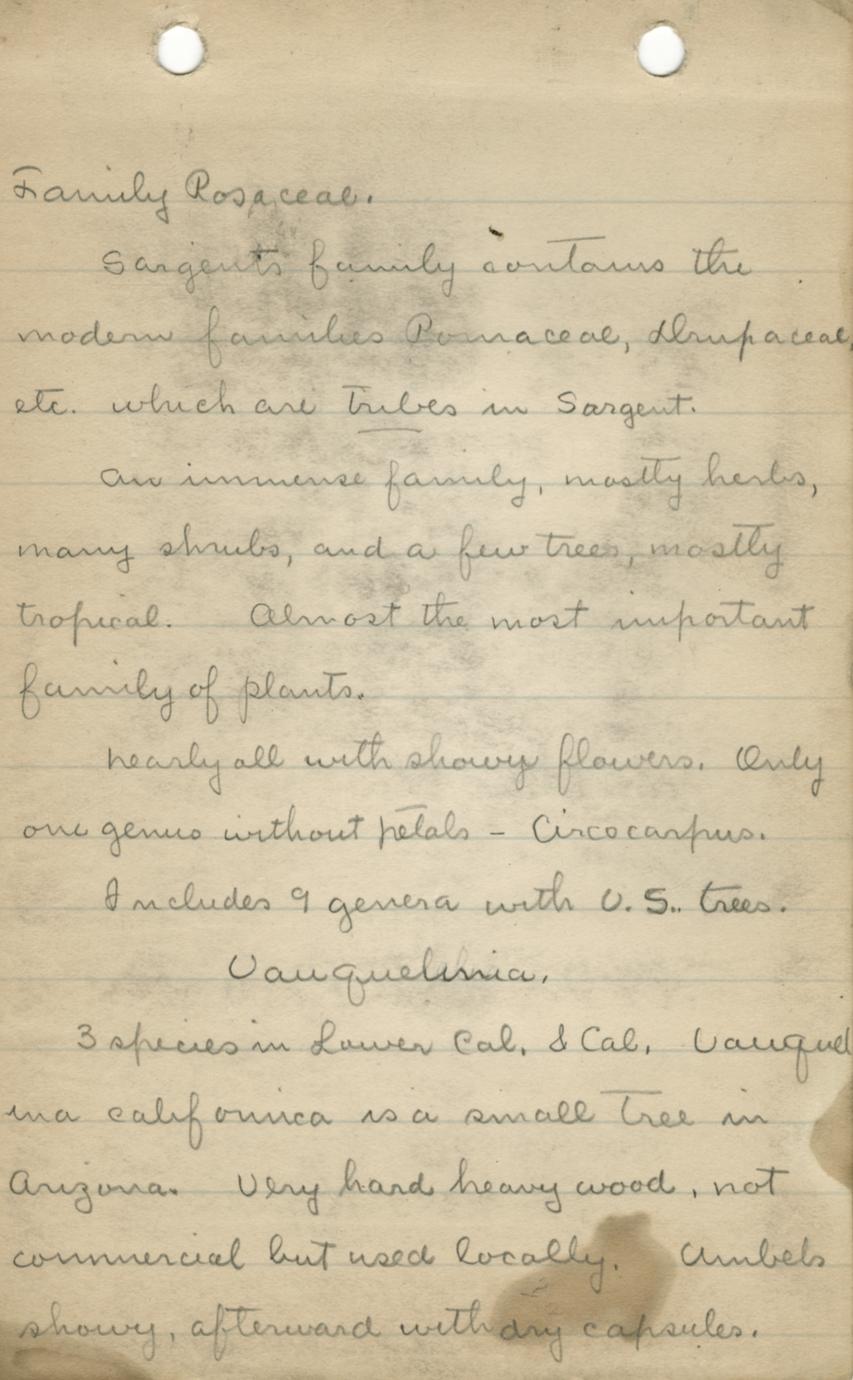 Family Rosaceae.
Sargents family contains the
modern families Pomaceae, Drupaceae,
etc. which are tribes in Sargent.
An immense family, mostly herbs,
many shrubs, and a few trees, mostly
tropical. Almost the most important
family of plants.
Nearly all with showy flowers. Only
one genus without petals - Circocarpus.
Includes 9 genera with U.S. trees.
Vauquelinia.
3 species in Lower Cal. & Cal. Vauquel
ina califonica is a small tree in
Arizona. Very hard heavy wood, not
commercial but used locally. Umbels
showy, afterward with dry capsules.